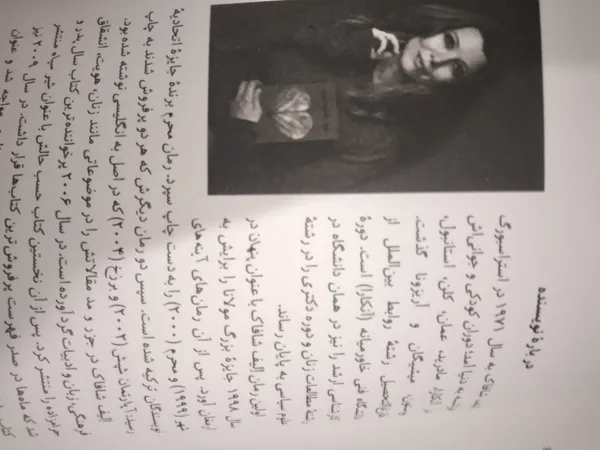 دربارهٔ نویسنده
شافاک به سال ۱۹۷۱ در استراسبورگ
به دنیا آمد؛ دوران کودکی و جوانی‌اش
آنکارا، مادرید، عمان، کلن، استانبول،
میشیگان و آریزونا گذشت.
رشتهٔ روابط بین‌الملل از
فنی خاورمیانه (آنکارا) است. دورهٔ
ارشد را نیز در همان دانشگاه در
رشتهٔ مطالعات زنان و دوره دکتری را در رشتهٔ
علوم سیاسی به پایان رساند.
اولین رمان الیف شافاک با عنوان پنهان در
سال ۱۹۹۸ جایزهٔ بزرگ مولانا را برایش به
ارمغان آورد. پس از آن رمان‌های آینه‌های
شهر (۱۹۹۹) و محرم (۲۰۰۰) را به دست چاپ سپرد. رمان محرم برندهٔ جایزهٔ اتحادیهٔ
نویسندگان ترکیه شده است. سپس دو رمان دیگرش که هر دو پرفروش شدند به چاپ
رسید: آپارتمان شپش (۲۰۰۲) و برزخ (۲۰۰۴) که در اصل به انگلیسی نوشته شده بود.
الیف شافاک در جزر و مد مقالاتش را در موضوعاتی مانند زنان، هویت، انشقاق
فرهنگی، زبان و ادبیات گرد آورده است. در سال ۲۰۰۶ پرخواننده‌ترین کتاب سال پدر و
حرامزاده را منتشر کرد. پس از آن نخستین کتاب حسب حالش با عنوان شیر سیاه منتشر
شد که ماه‌ها در صدر فهرست پرفروش‌ترین کتاب‌ها قرار داشت. در سال ۲۰۰۹ نیز
کتاب مواجه شد و عنوان